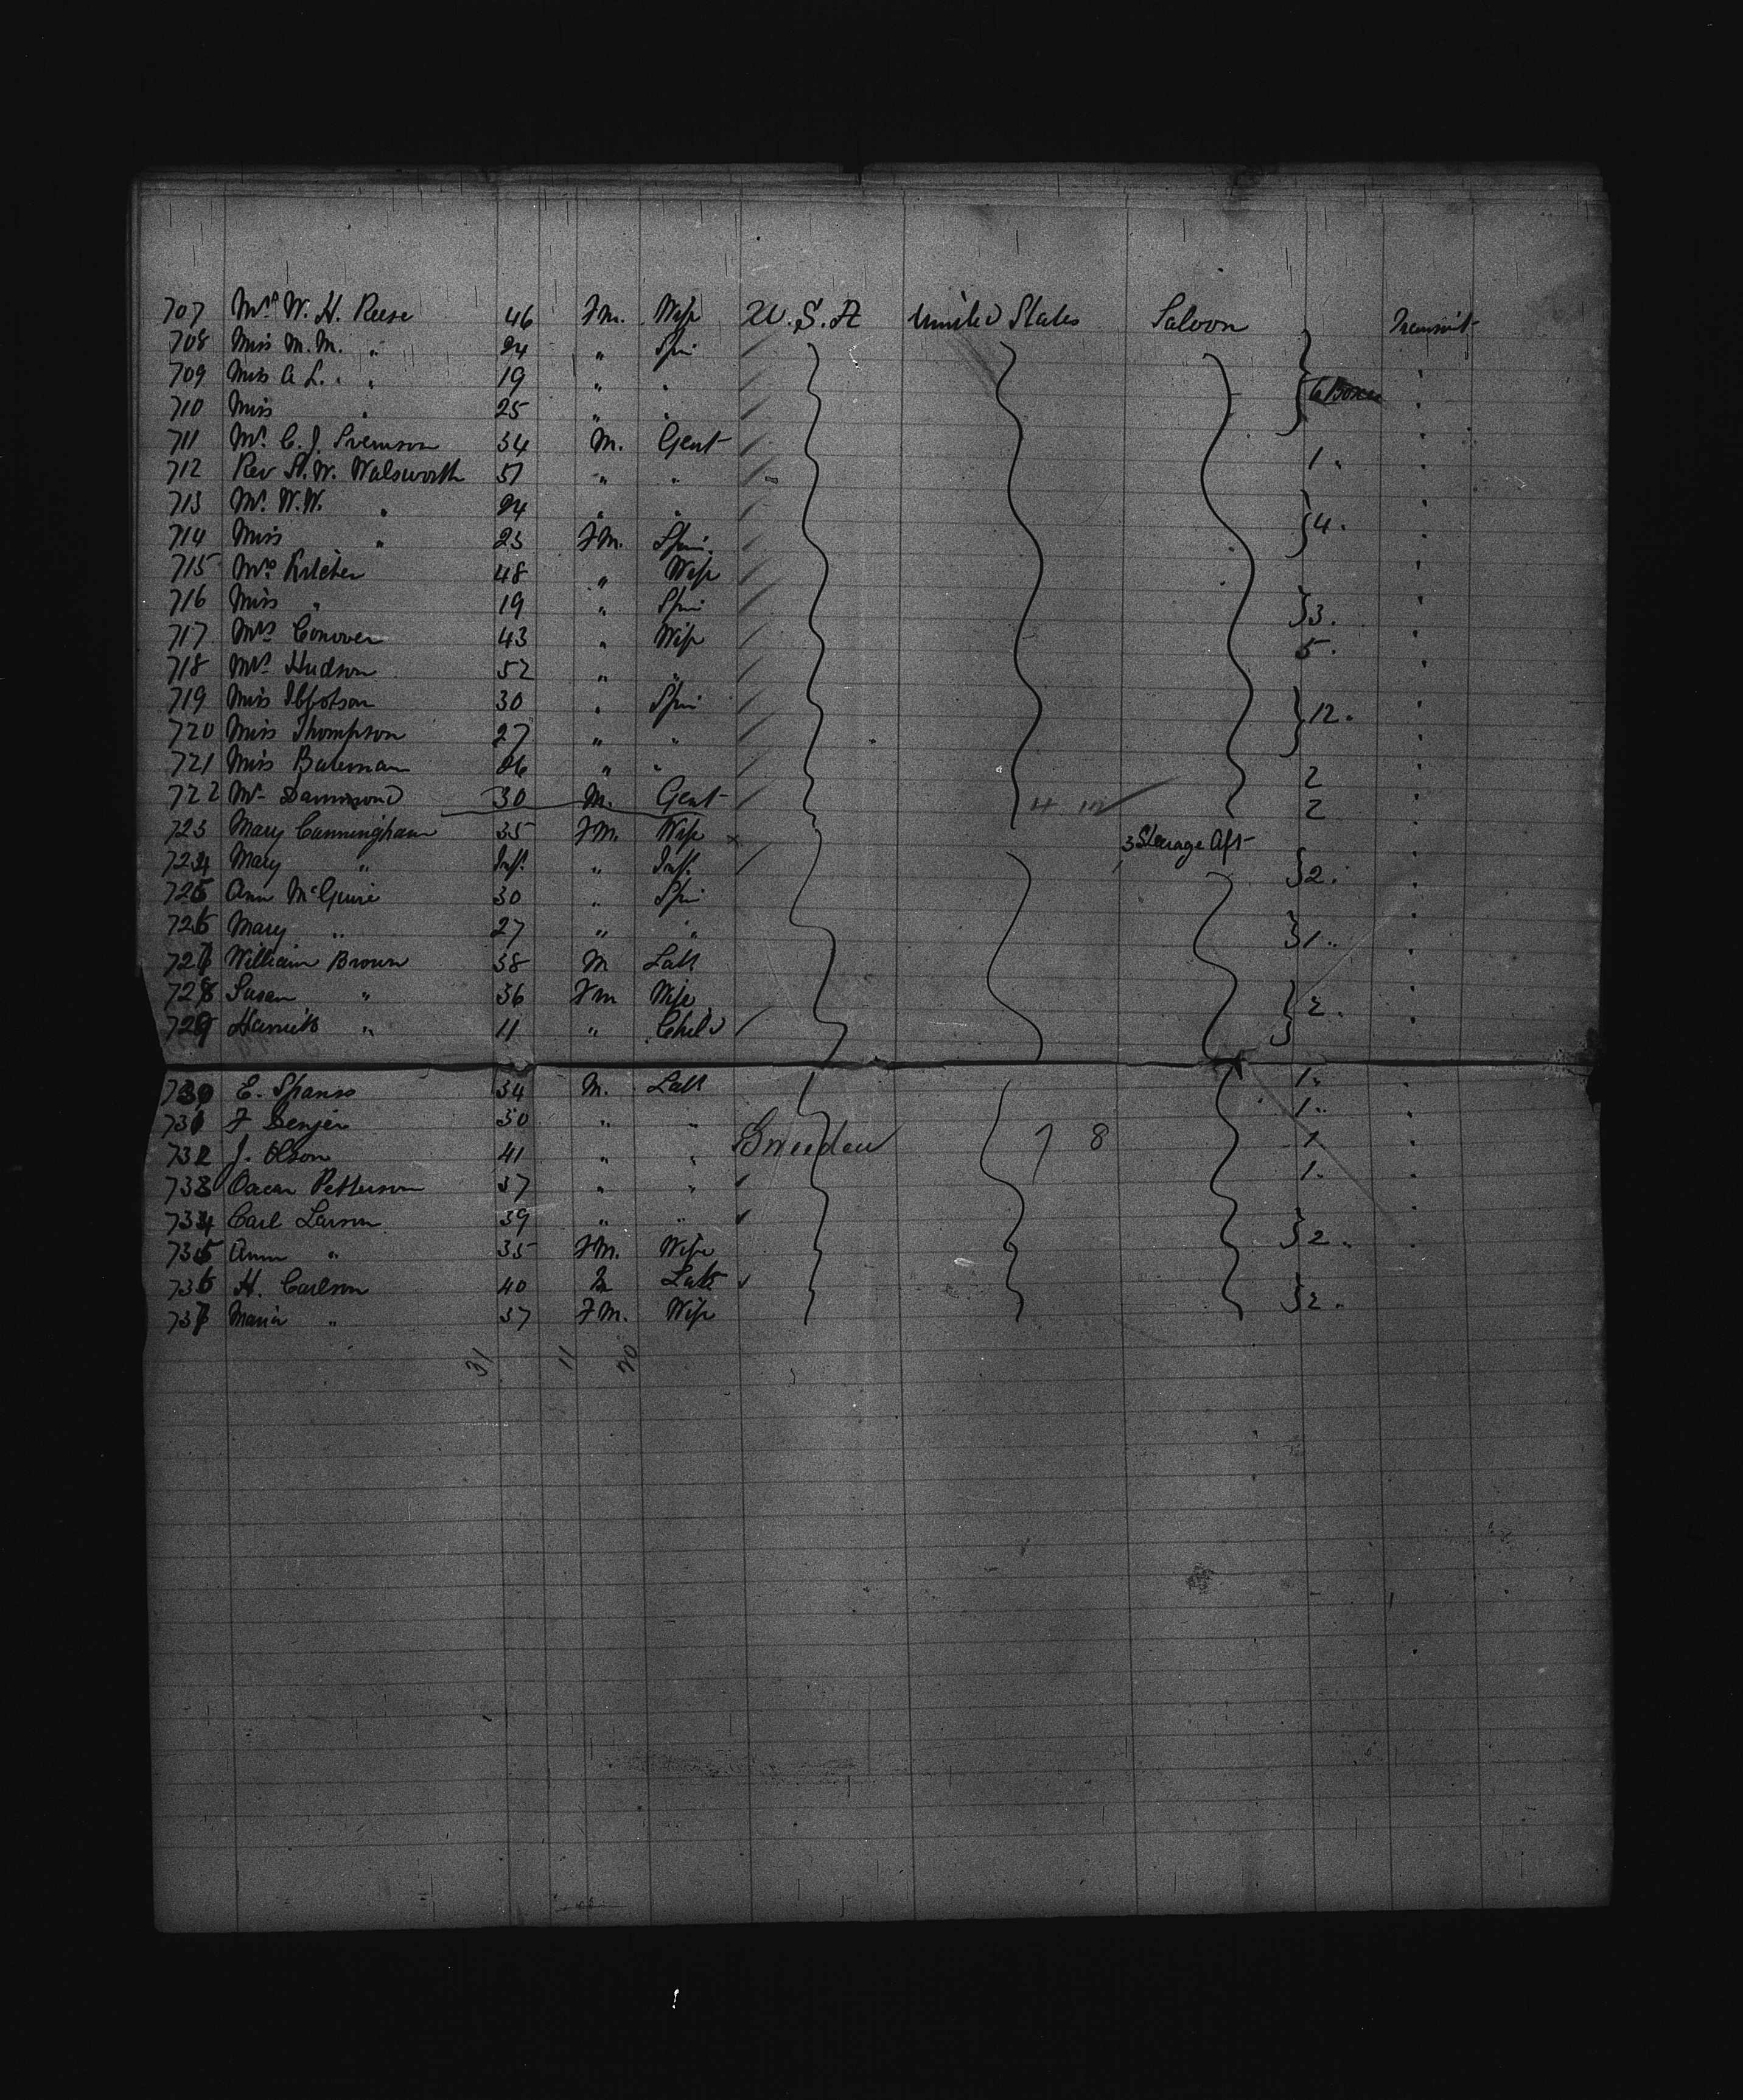 707 Mrs W. H. Reese 46 Fm. Wife U.S.A United States Saloon Transit
708 Miss M. M. " 24 " Spin
709 Miss A L. " 19 " " 6 Boxes "
710 Miss " 25 " " "
711 Mr. C. J. 34 M. Gent 1 " "
712 Rev A. W. Walsworth 51 " " "
713 Mr. W. W. " 24 " " 4 " "
714 Miss " 23 Fm. Spin. "
715 Mrs Kitchen 48 " Wife "
716 Miss " 19 " Spin 3 " "
717 Mrs Conover 43 " Wife 5 " "
718 Mrs Hudson 52 " " "
719 Miss Ibbotson 30 " Spin 12 " "
720 Miss Thompson 27 " " "
721 Miss Bateman 26 " " 2 "
722 Mr Dammond 30 M. Gent 2 "
723 Mary Cunningham 35 Fm. Wife x 3 Stearage Aft
724 Mary " Inft. " Inft. 2 " "
725 Ann McGuire 30 " Spin "
726 Mary " 27 " " 1 " "
727 William Brown 38 M Labr "
728 Susan " 36 Fm Wife 2 " "
729 Harriet " 11 " Child "
730 E. Spanss 34 M. Labr 1 " "
731 F 30 " " 1 " "
732 J. Olson 41 " " Sweeden 7 8 1 "
733 Oscar Petterson 37 " " 1 " "
734 Carl Larson 39 " " "
735 Ann " 35 Fm. Wife 2 " "
736 H. Carlson 40 M Labr
737 Maria " 37 Fm. Wife 2 "
31 11 20